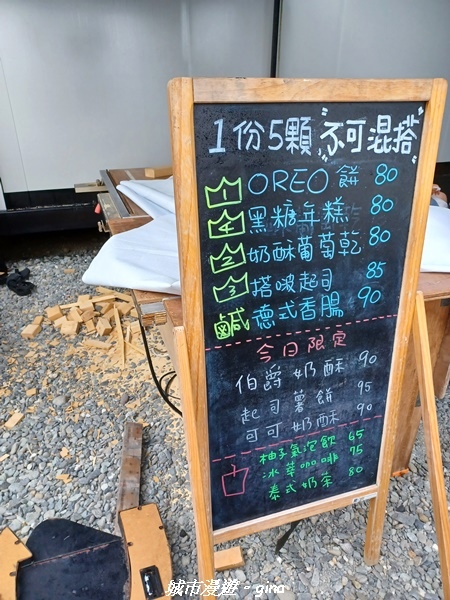 1份5顆 不可混搭
1 OREO餅 80
4 黑糖年糕 80
2 奶酥葡萄乾 80
3 搭啵起司 85
鹹 德式香腸 90
今日限定
伯爵奶酥 90
起司薯餅 95
可可奶酥 90
柚子氣泡飲 65
冰萃咖啡 75
泰式奶茶 80
城市漫遊。gina